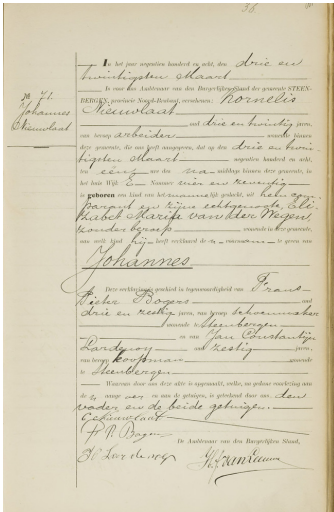 36.
In het jaar negentien honderd en acht, den drie en
twintigsten Maart
is voor ons Ambtenaar van den Burgerlijken Stand der gemeente STEEN-
BERGEN, provincie Noord-Brabant, verschenen: Kornelis
Nieuwlaat
oud drie en twintig jaren,
van beroep arbeider wonende binnen
deze gemeente, die ons heeft aangegeven, dat op den drie en twin-
tigsten Maart negentien honderd en acht,
ten één ure des na middags binnen deze gemeente, in
het huis Wijk E Nummer vier en zeventig
is geboren een kind van het mannelijk geslacht, uit hem com-
parant en zijne echtgenoote, Eli-
zabet Maria van der Wegen,
zonder beroep wonende in deze gemeente,
aan welk kind hij heeft verklaard de voornaam te geven van
Johannes
No 71.
Johannes
Nieuwlaat
Deze verklaring is geschied in tegenwoordigheid van Frans
Pieter Bogers oud
drie en zestig jaren, van beroep schoenmaker
wonende te Steenbergen
en van Jan Constantijn
oud zestig jaren,
van beroep koopman wonende
te Steenbergen.
Waarvan door ons deze akte is opgemaakt, welke, na gedane voorlezing aan
de en aan de getuigen, is geteekend door ons, den
vader en de beide getuigen.
C Nieuwlaat
Fr P. Bogers
De Ambtenaar van den Burgerlijken Stand,